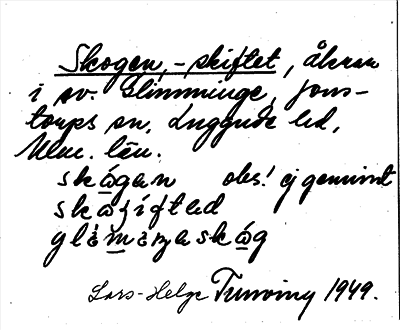 Skogen, -skiftet, åkrar
i sv. Glimminge, Jons-
torps sn, Luggude hd,
Mlm. län.
skǡgan obs! ej genuint
skǡʃifted
glìmiŋaskǡg
Lars-Helge Tunving 1949.